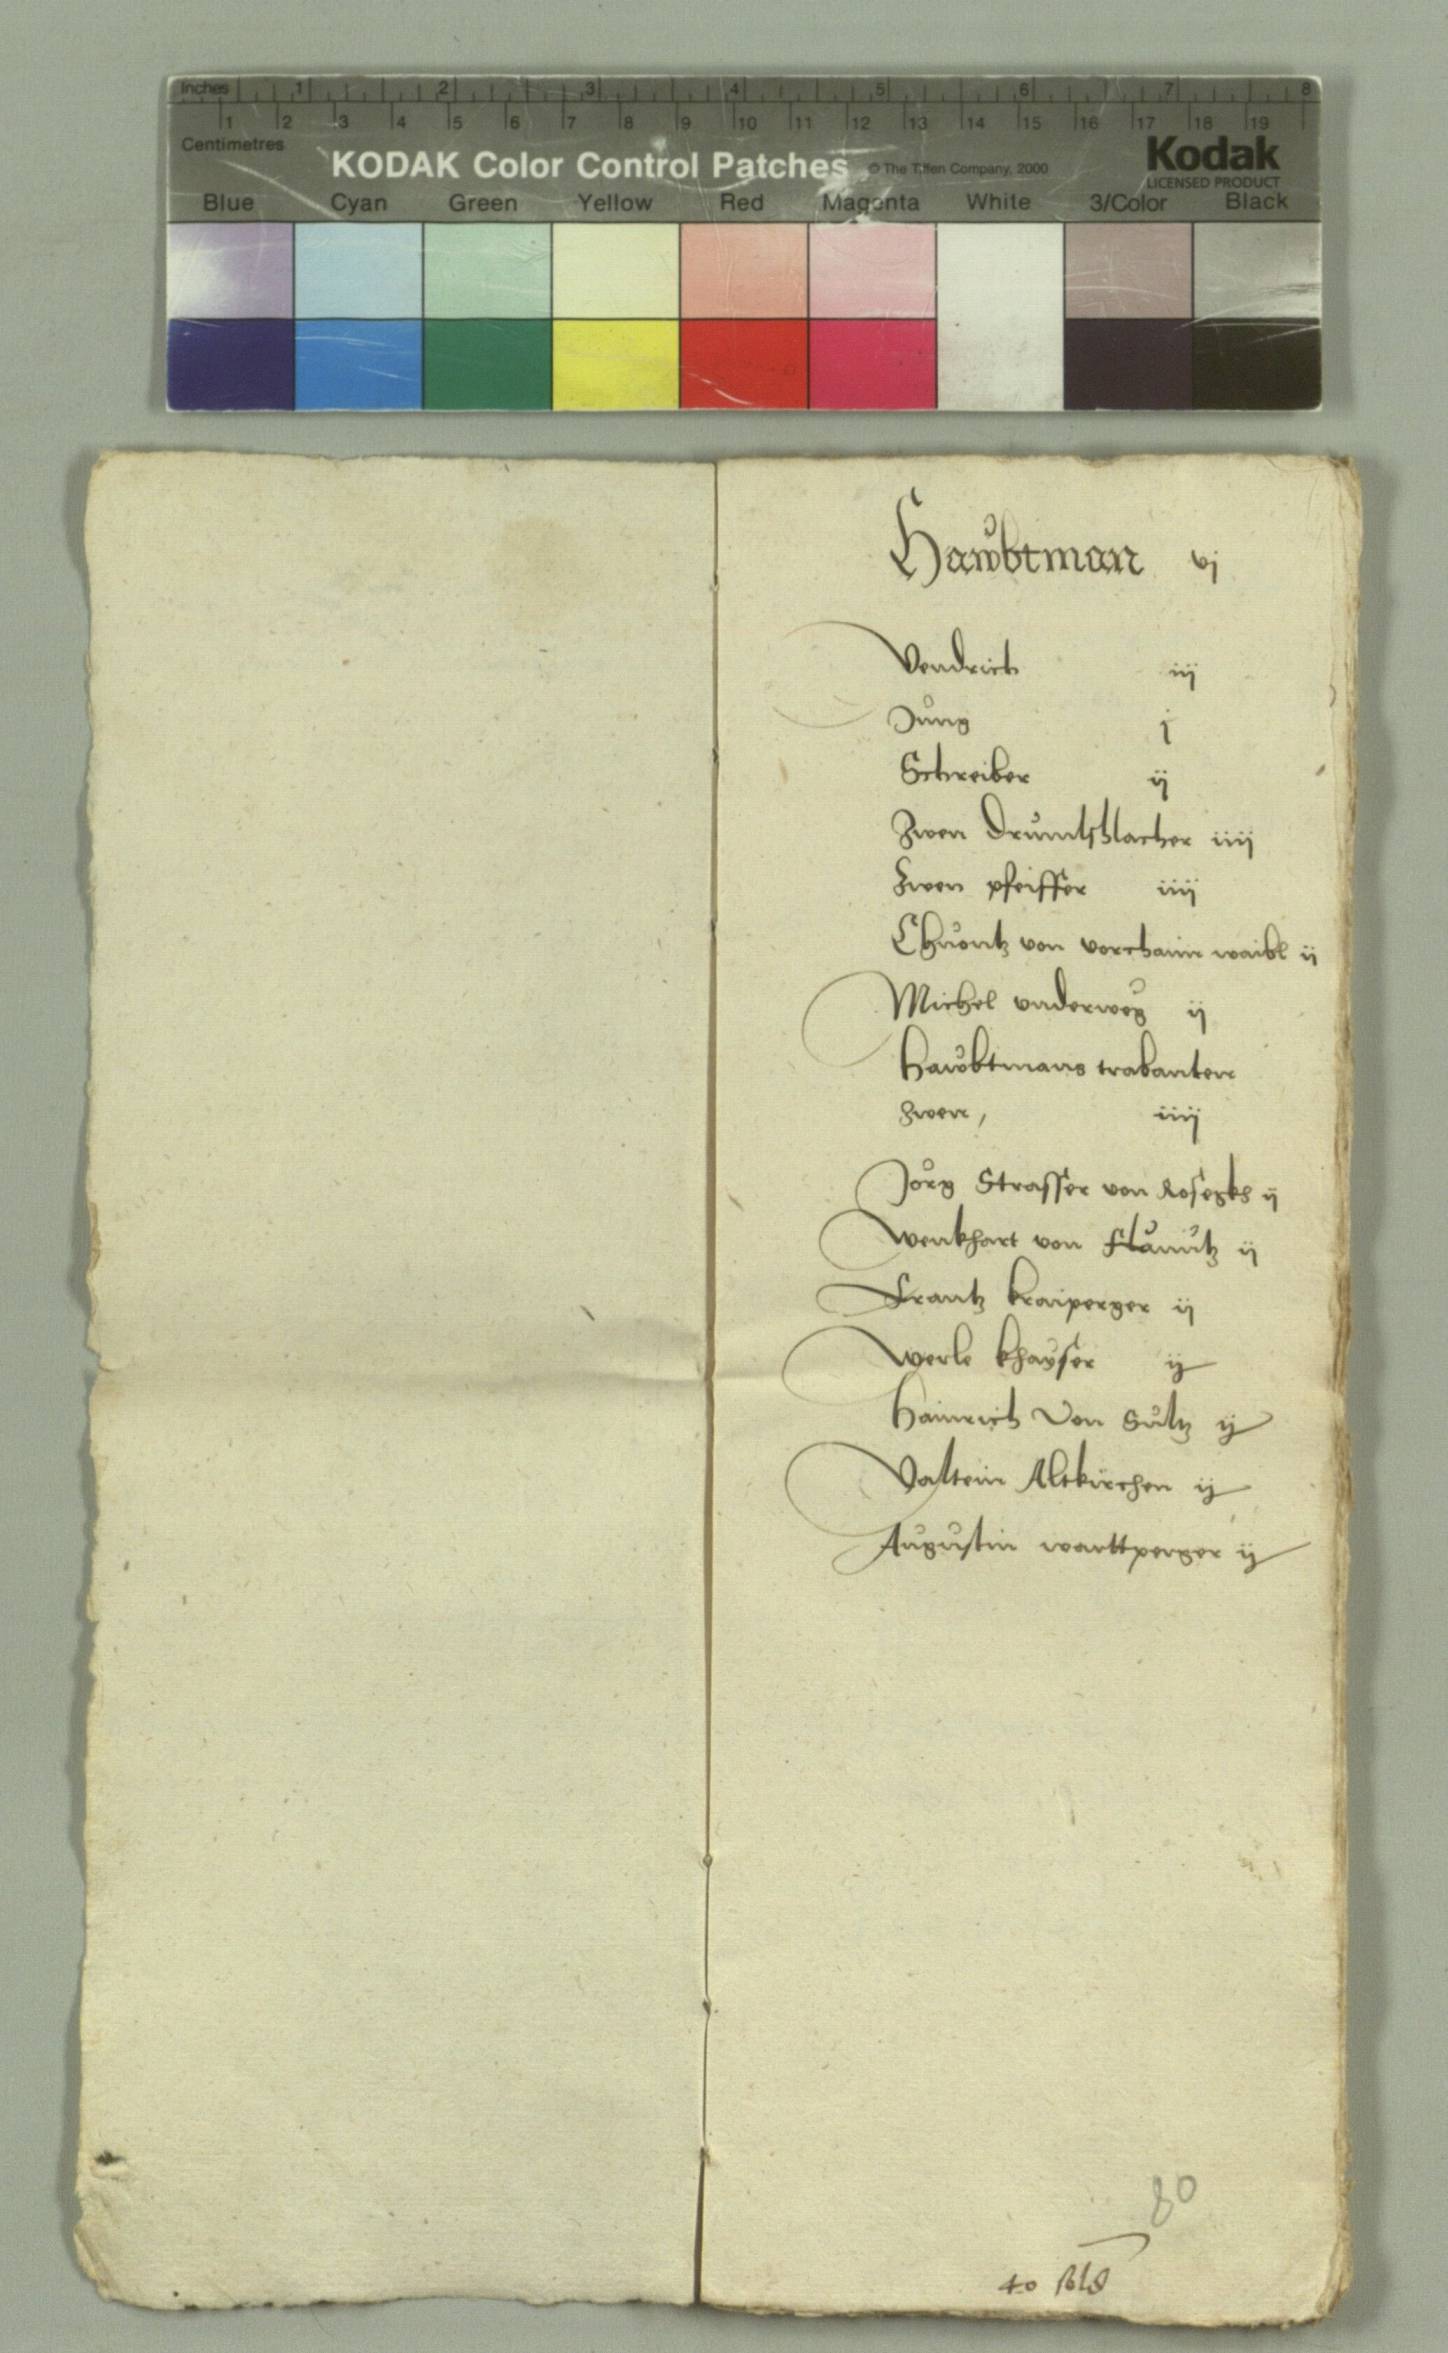 Inches 1 2 3 4 5 6 7 8
1 2 3 4 5 6 7 8 9 10 11 12 13 14 15 16 17 18 19
Centimetres
KODAK Color Control Patches © The Tiffen Company, 2000 Kodak
LICENSED PRODUCT
Blue Cyan Green Yellow Red Magenta White 3/Color Black
Hawbtman vj
Vendrich iij
Jung j
Schreiber ij
Zwen Drumlschlacher iiij
Zwen pfeiffer iiij
Chuontz von vorchaim waibl ij
Michel underweg ij
Hawbtmans trabanten
zwen, iiij
Jorg Strasser von Rosegkh ij
Wenkhart von ij
Frantz kraiperger ij
Werle khayser ij
Hainrich Von Sultz ij
Valtein Altkirchen ij
Augustin warttperger ij
80
40